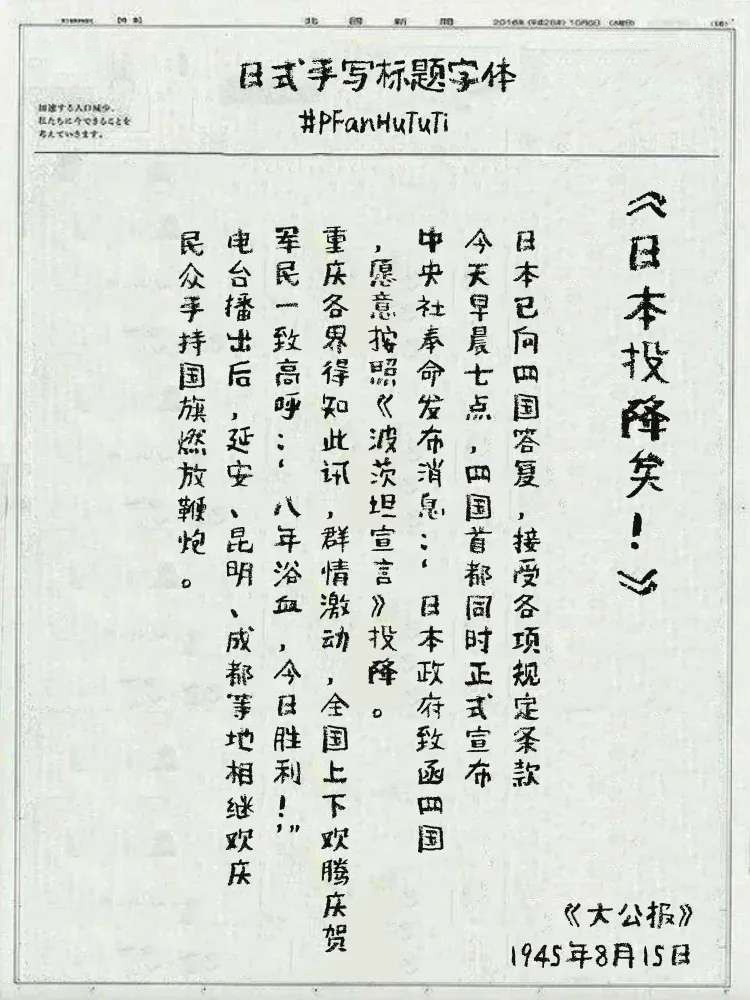 北國新聞
2016年(平成28年)10月5日(水曜日)
日式手写标题字体
#PFanHuTuTi
加速する人口減少、
私たちに今できることを
考えていきます。
《日本投降矣！》
日本已向四国答复，接受各项规定条款
今天早晨七点，四国首都同时正式宣布
中央社奉命发布消息：‘日本政府致函四国
，愿意按照《波茨坦宣言》投降。
重庆各界得知此讯，群情激动，全国上下欢腾庆贺
军民一致高呼：‘八年浴血，今日胜利！’”
电台播出后，延安、昆明、成都等地相继欢庆
民众手持国旗燃放鞭炮。
《大公报》
1945年8月15日